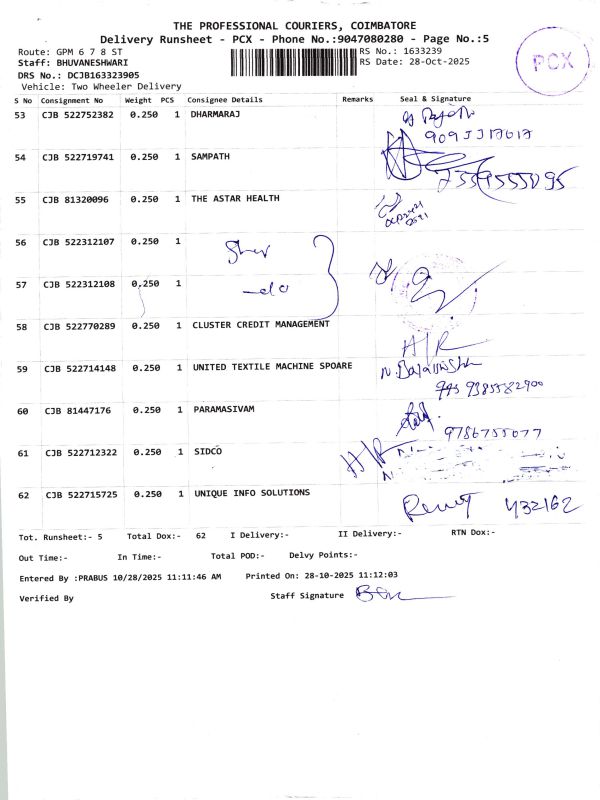 THE PROFESSIONAL COURIERS, COIMBATORE
Delivery Runsheet - PCX - Phone No.:9047080280 - Page No.:5
Route: GPM 6 7 8 ST RS No.: 1633239
Staff: BHUVANESHWARI RS Date: 28-Oct-2025
DRS No.: DCJB163323905
Vehicle: Two Wheeler Delivery
PCX
S No Consignment No Weight PCS Consignee Details Remarks Seal & Signature
53 CJB 522752382 0.250 1 DHARMARAJ
54 CJB 522719741 0.250 1 SAMPATH
55 CJB 81320096 0.250 1 THE ASTAR HEALTH
56 CJB 522312107 0.250 1
57 CJB 522312108 0.250 1 -do
58 CJB 522770289 0.250 1 CLUSTER CREDIT MANAGEMENT H/R
59 CJB 522714148 0.250 1 UNITED TEXTILE MACHINE SPOARE
9385582900
60 CJB 81447176 0.250 1 PARAMASIVAM
9786755077
61 CJB 522712322 0.250 1 SIDCO H/R
62 CJB 522715725 0.250 1 UNIQUE INFO SOLUTIONS 432162
Tot. Runsheet:- 5 Total Dox:- 62 I Delivery:- II Delivery:- RTN Dox:-
Out Time:- In Time:- Total POD:- Delvy Points:-
Entered By :PRABUS 10/28/2025 11:11:46 AM Printed On: 28-10-2025 11:12:03
Verified By Staff Signature